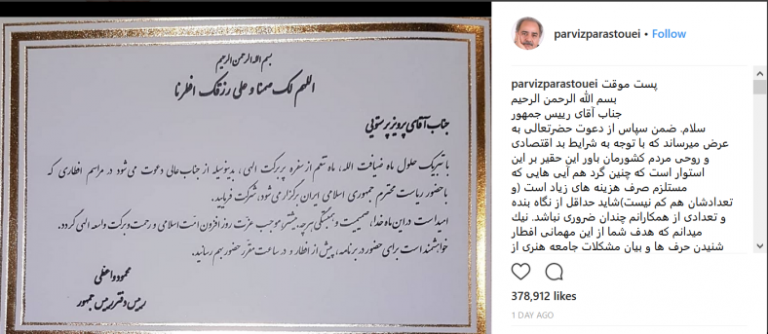 بسم الله الرحمن الرحیم
اللهم لک صمنا و علی رزقک افطرنا
جناب آقای پرویز پرستویی
با تبریک حلول ماه ضیافت الله، ماه تنعم از سفره پربرکت الهی، بدینوسیله از جنابعالی دعوت می‌شود در مراسم افطاری که
با حضور ریاست محترم جمهوری اسلامی ایران برگزار می‌شود، شرکت فرمایید.
امید است در این ماه خدا، صمیمیت و همبستگی هرچه بیشتر، موجب عزت روزافزون امت اسلامی و رحمت و برکت واسعه الهی گردد.
خواهشمند است برای حضور در برنامه، پیش از افطار و در ساعت مقرر حضور بهم رسانید.
محمود واعظی
رییس دفتر رییس جمهور
parvizparastouei • Follow
parvizparastouei پست موقت
بسم الله الرحمن الرحیم
جناب آقای رییس جمهور
سلام. ضمن سپاس از دعوت حضرتعالی به
عرض میرساند که با توجه به شرایط بد اقتصادی
و روحی مردم کشورمان باور این حقیر بر این
استوار است که چنین گرد هم آیی هایی که
مستلزم صرف هزینه های زیاد است (و
تعدادشان هم کم نیست)شاید حداقل از نگاه بنده
و تعدادی از همکارانم چندان ضروری نباشد. نیك
میدانم که هدف شما از این مهمانی افطار
شنیدن حرف ها و بیان مشکلات جامعه هنری از
378,912 likes
1 DAY AGO